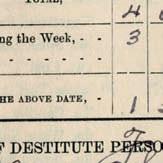 TOTAL, 4
ng the Week, - - 3
- - - - -
HE ABOVE DATE, - 1
F DESTITUTE PERSO